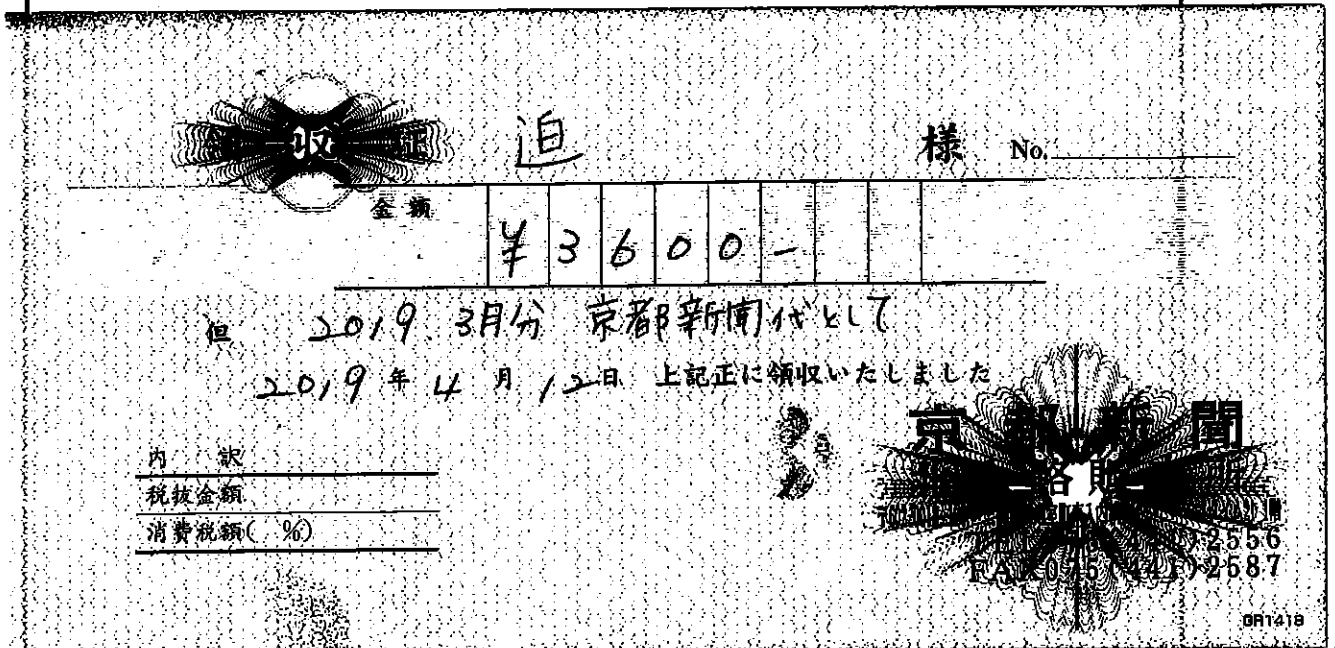 収
迫 様 No.
金額 ¥3600-
但 2019.3月分 京都新聞代として
2019年4月12日 上記正に領収いたしました
京都新聞
内訳
税抜金額
消費税額( %)
2556
FAX075(441)2587
GR1418